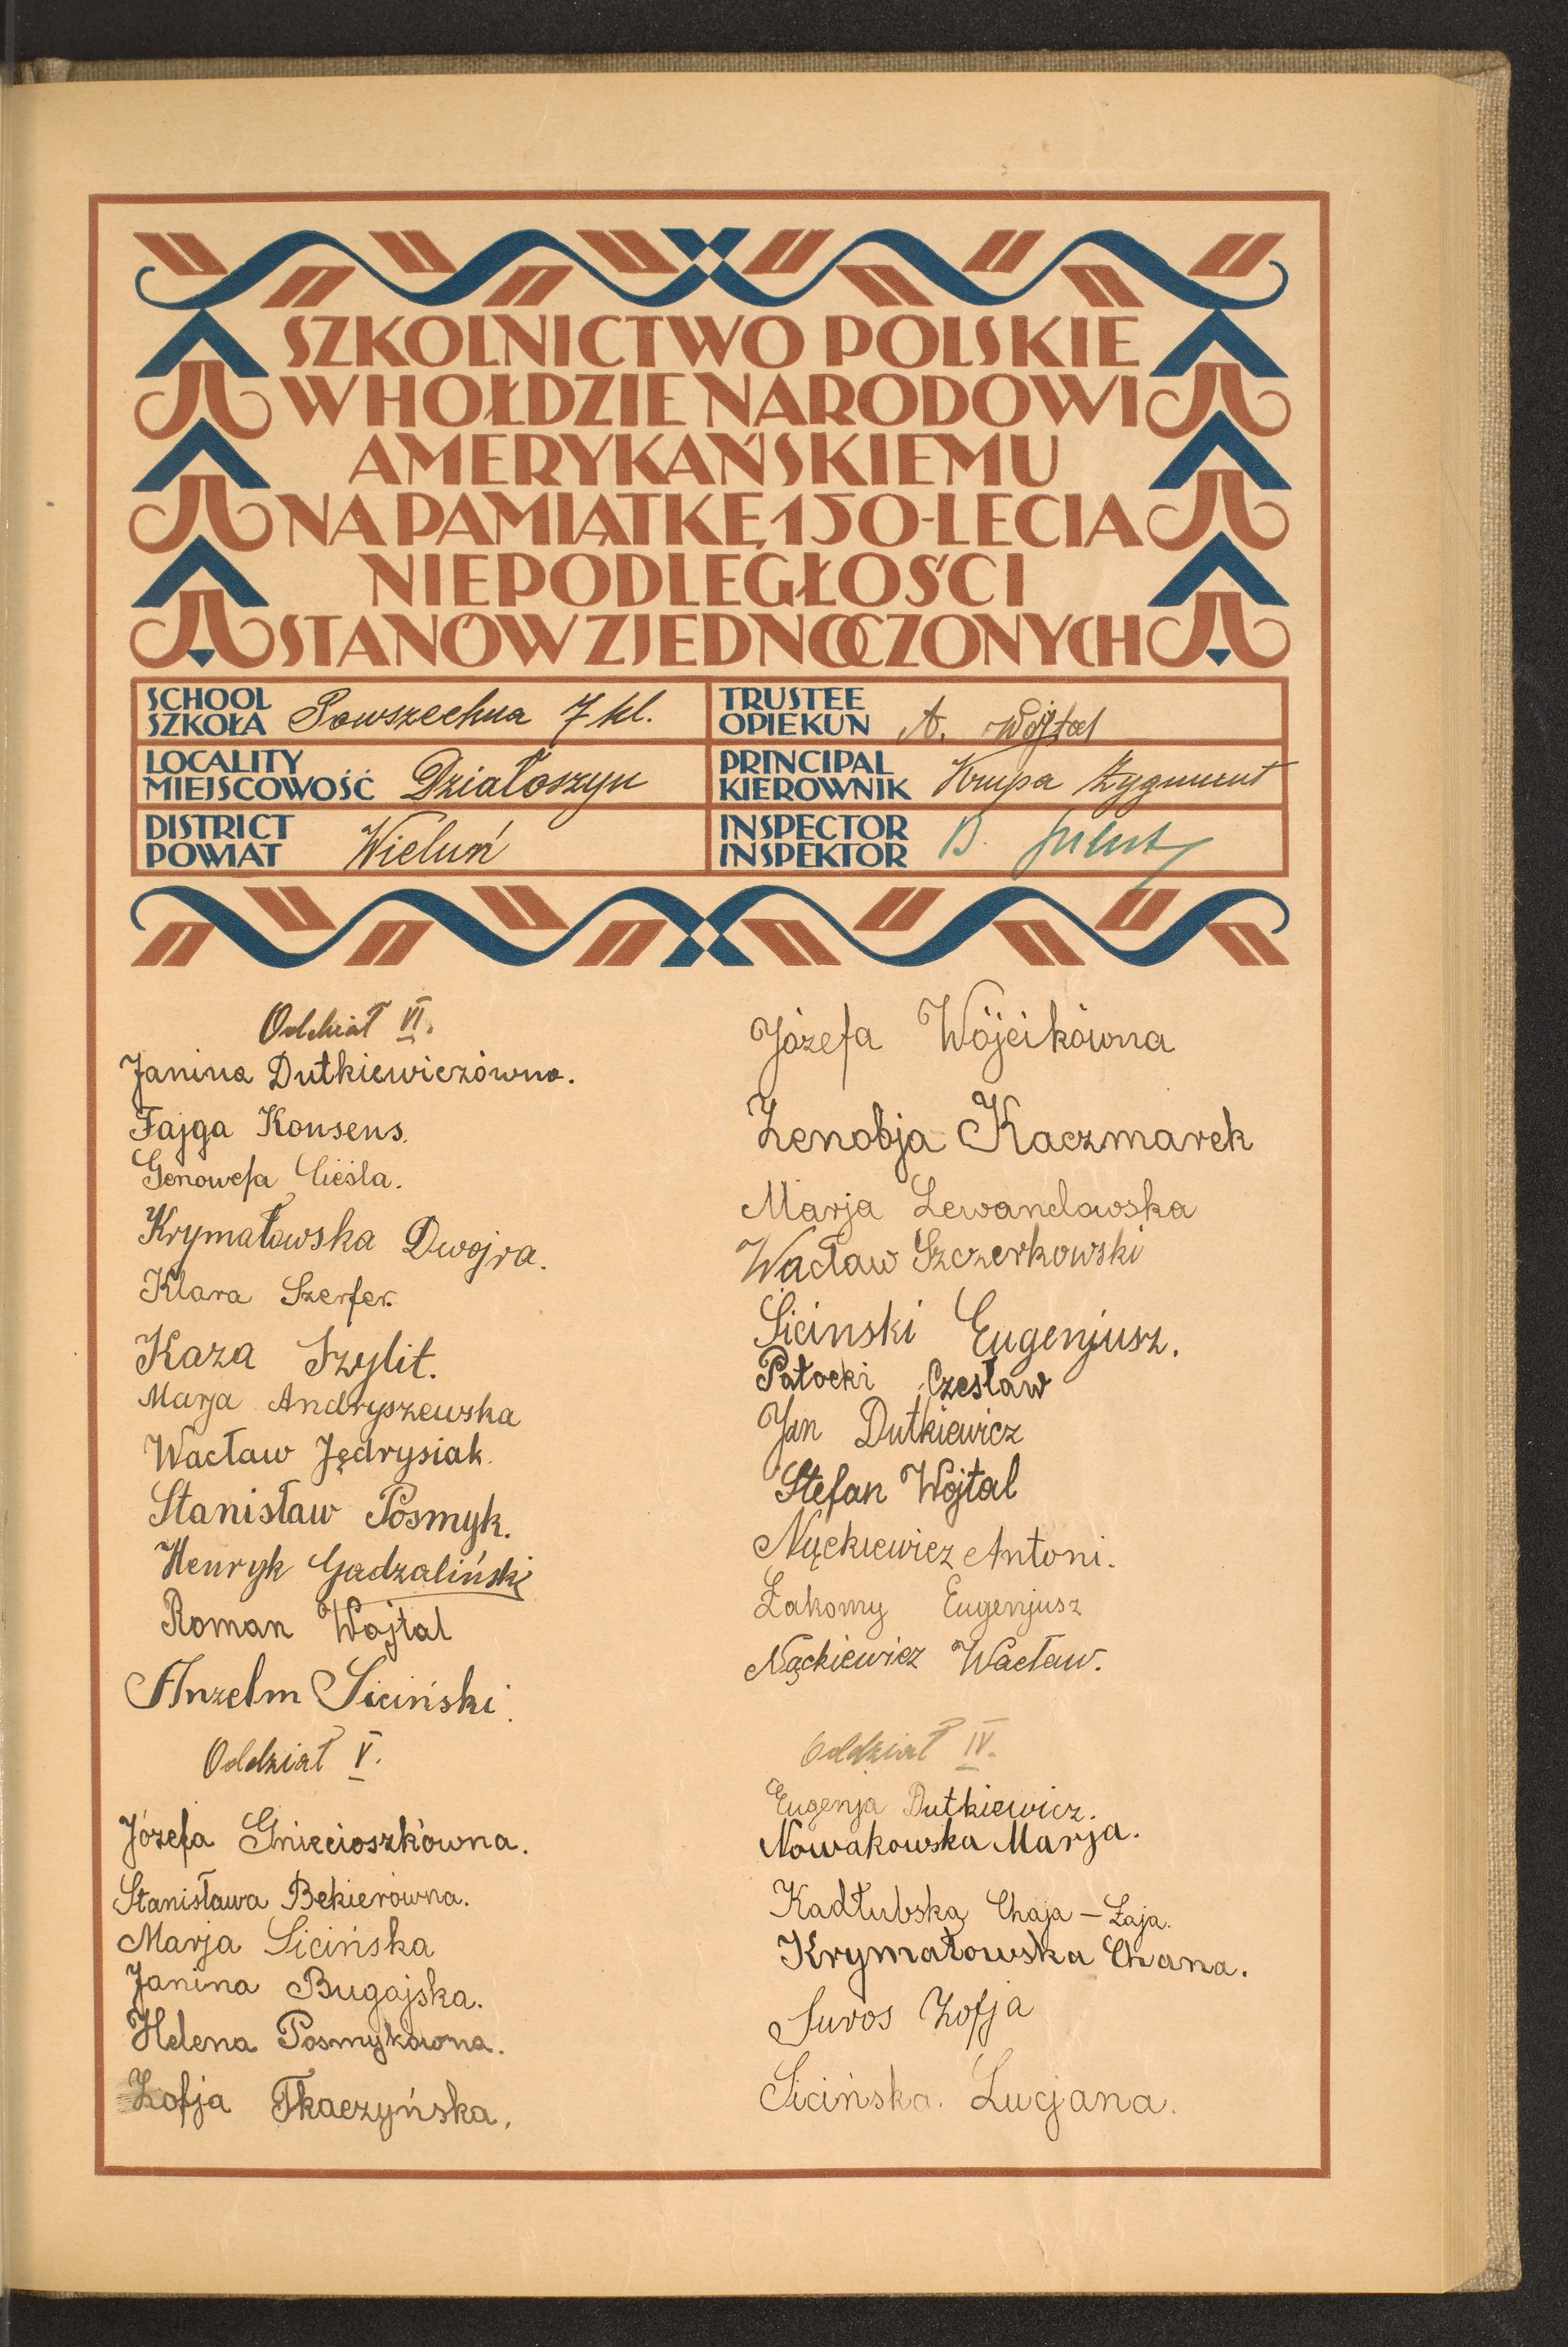 SZKOLNICTWO POLSKIE
W HOŁDZIE NARODOWI
AMERYKAŃSKIEMU
NA PAMIĄTKĘ 150-LECIA
NIEPODLEGŁOŚCI
STANÓW ZJEDNOCZONYCH
SCHOOL
SZKOŁA Powszechna 7 kl.
TRUSTEE
OPIEKUN A. Wojtal
LOCALITY
MIEJSCOWOŚĆ Działoszyn
PRINCIPAL
KIEROWNIK Krupa Zygmunt
DISTRICT
POWIAT Wieluń
INSPECTOR
INSPEKTOR B.
Oddział VI.
Janina Dutkiewiczówna.
Fajga Konsens.
Genowefa Cieśla.
Krymałowska Dwojra.
Klara Szerfer.
Kaza Szylit.
Marja Andryszewska
Wacław Jędrysiak.
Stanisław Posmyk.
Henryk Gadzaliński
Roman Wojtal
Anzelm Siciński.
Oddział V.
Józefa Gniecioszkówna.
Stanisława Bekierówna.
Marja Sicińska
Janina Bugajska.
Helena Posmykówna.
Zofja Tkaczyńska.
Józefa Wójcikówna
Zenobja Kaczmarek
Marja Lewandowska
Wacław Szczerkowski
Sicinski Eugenjusz.
Patocki Czesław
Jan Dutkiewicz
Stefan Wojtal
Nąckiewicz Antoni.
Łakomy Eugenjusz
Nąckiewicz Wacław.
Oddział IV.
Eugenja Dutkiewicz.
Nowakowska Marja.
Kadłubska Chaja - Łaja.
Krymałowska Chana.
Suvos Zofja
Sicińska. Lucjana.